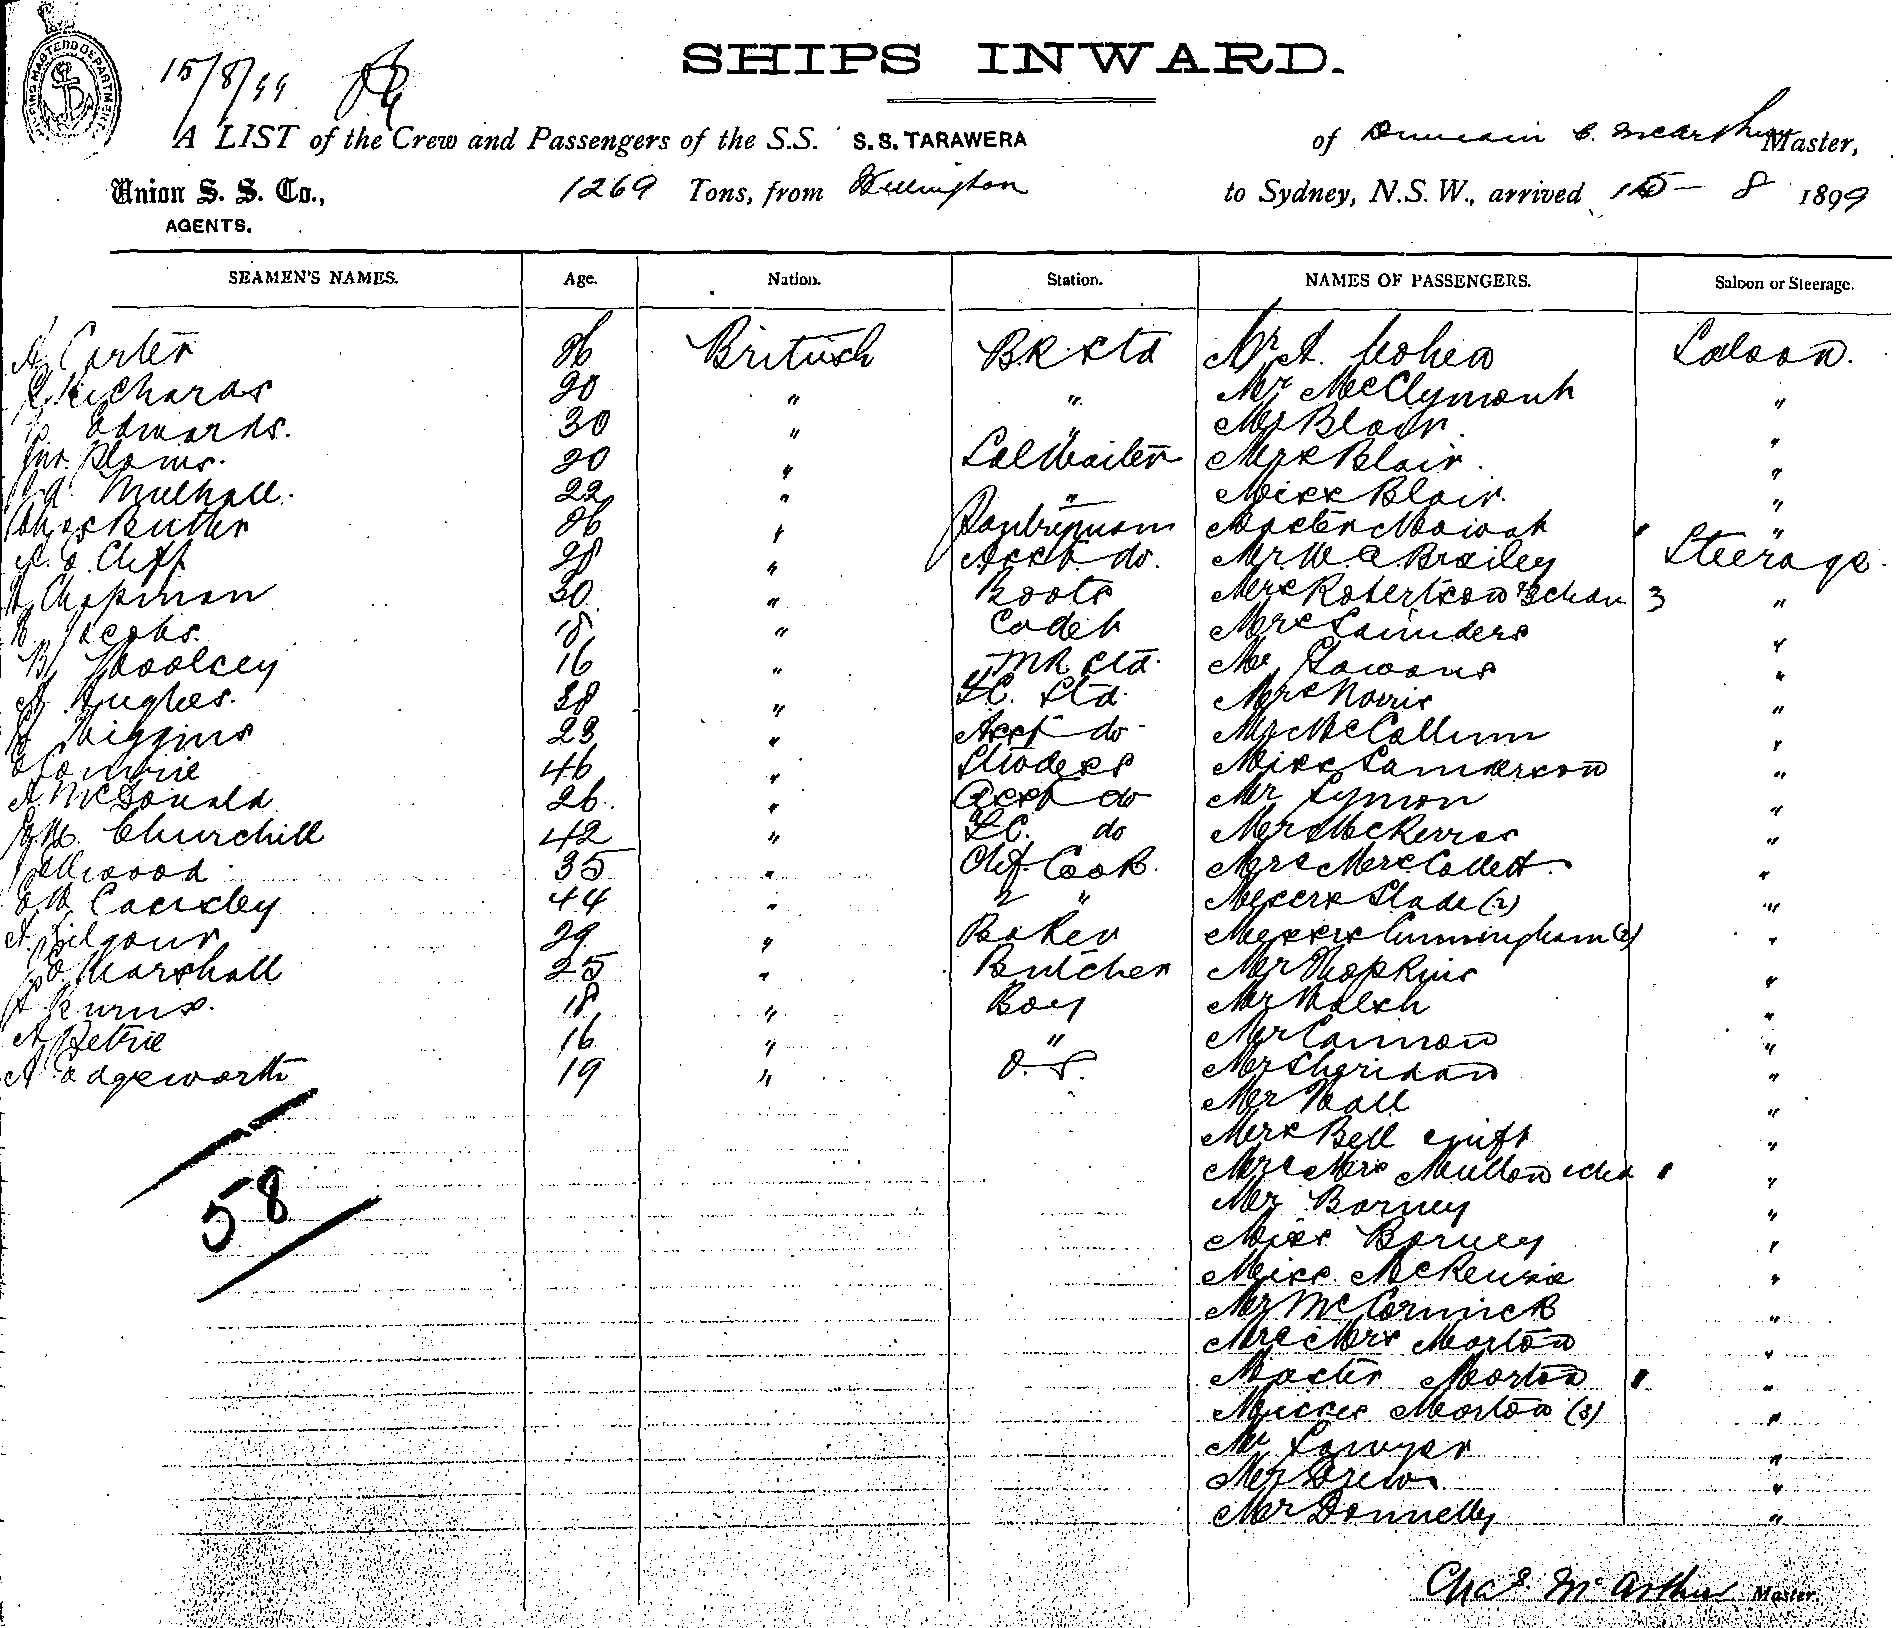 SHIPS INWARD.
15/8/99
A LIST of the Crew and Passengers of the S.S. S.S. TARAWERA of Duncain C. McArthur Master,
Union S. S. Co., 1269 Tons, from Wellington to Sydney, N.S.W., arrived 15-8 1899
AGENTS.
SEAMEN'S NAMES. Age. Nation. Station. NAMES OF PASSENGERS. Saloon or Steerage.
Carter British B.R. Std Mr A. Cohen Saloon.
Richards 20 " " Mr McClymont "
Edwards. 30 " " Mr Blair "
20 " Sal Waiter Mrs Blair. "
Mulhall. 22 " " Miss Blair. "
Chas Butler " Pantryman Master Mowat "
Cliff 28 " Asst do. Mr W. C Brailey Steerage.
Chapman 30 " Boots Mrs Robertson 3 "
Jacobs. 18 " Cadet Mrs Saunders "
Woolcey 16 " Std. Mr Gowans "
Hughes. 28 " F.C. Std. Mrs Norris "
Higgins 23 " Asst do Mr McCallum "
46 " Miss Sanderson "
A. McDonald 26. " Asst do Mr Symon "
Churchill 42 " F.C. do "
Ellwood 35 " Chf. Cook. Mr & Mrs Collett "
44 " 2 " Messrs Slade (2) "
A. Kilgour 29 " Baker Messrs Cunningham (2) "
Marshall 25 " Butcher Mr Hopkins "
Burns. 18 " Boy Mr Walsh "
A Petrie 16 " " Mr Cannon "
A Edgeworth 19 " O.S. Mr Sheridan "
Mr Hall "
Mrs Bell & inft "
Mr & Mrs Mullon "
58
Mr Barney "
Miss Barney "
Miss McKenzie "
Mr McCormick "
Mr & Mrs Morton "
Master Morton "
Misses Morton (3) "
Mr Sawyer "
Mr Drew "
Mr Donnelly "
Chas. McArthur Master.